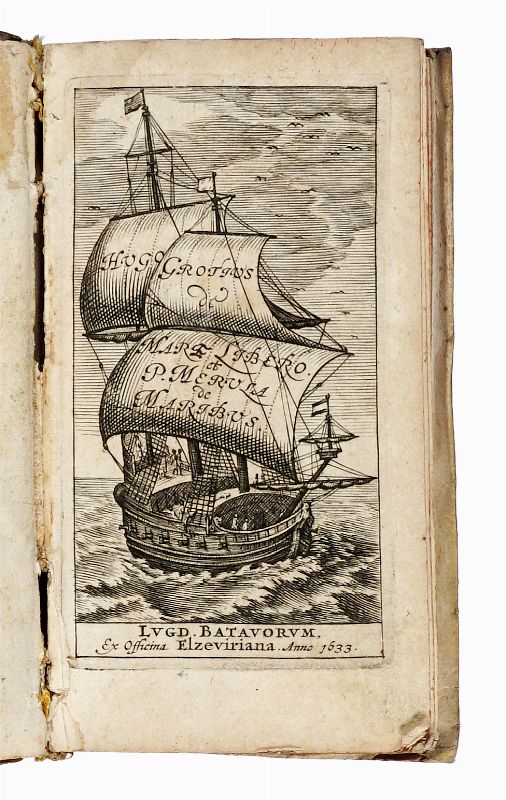 HUGO GROTIUS
de
MARE LIBERO
et
P. MERULA
de
MARIBUS
LVGD. BATAVORVM,
Ex Officina Elzeviriana. Anno 1633.